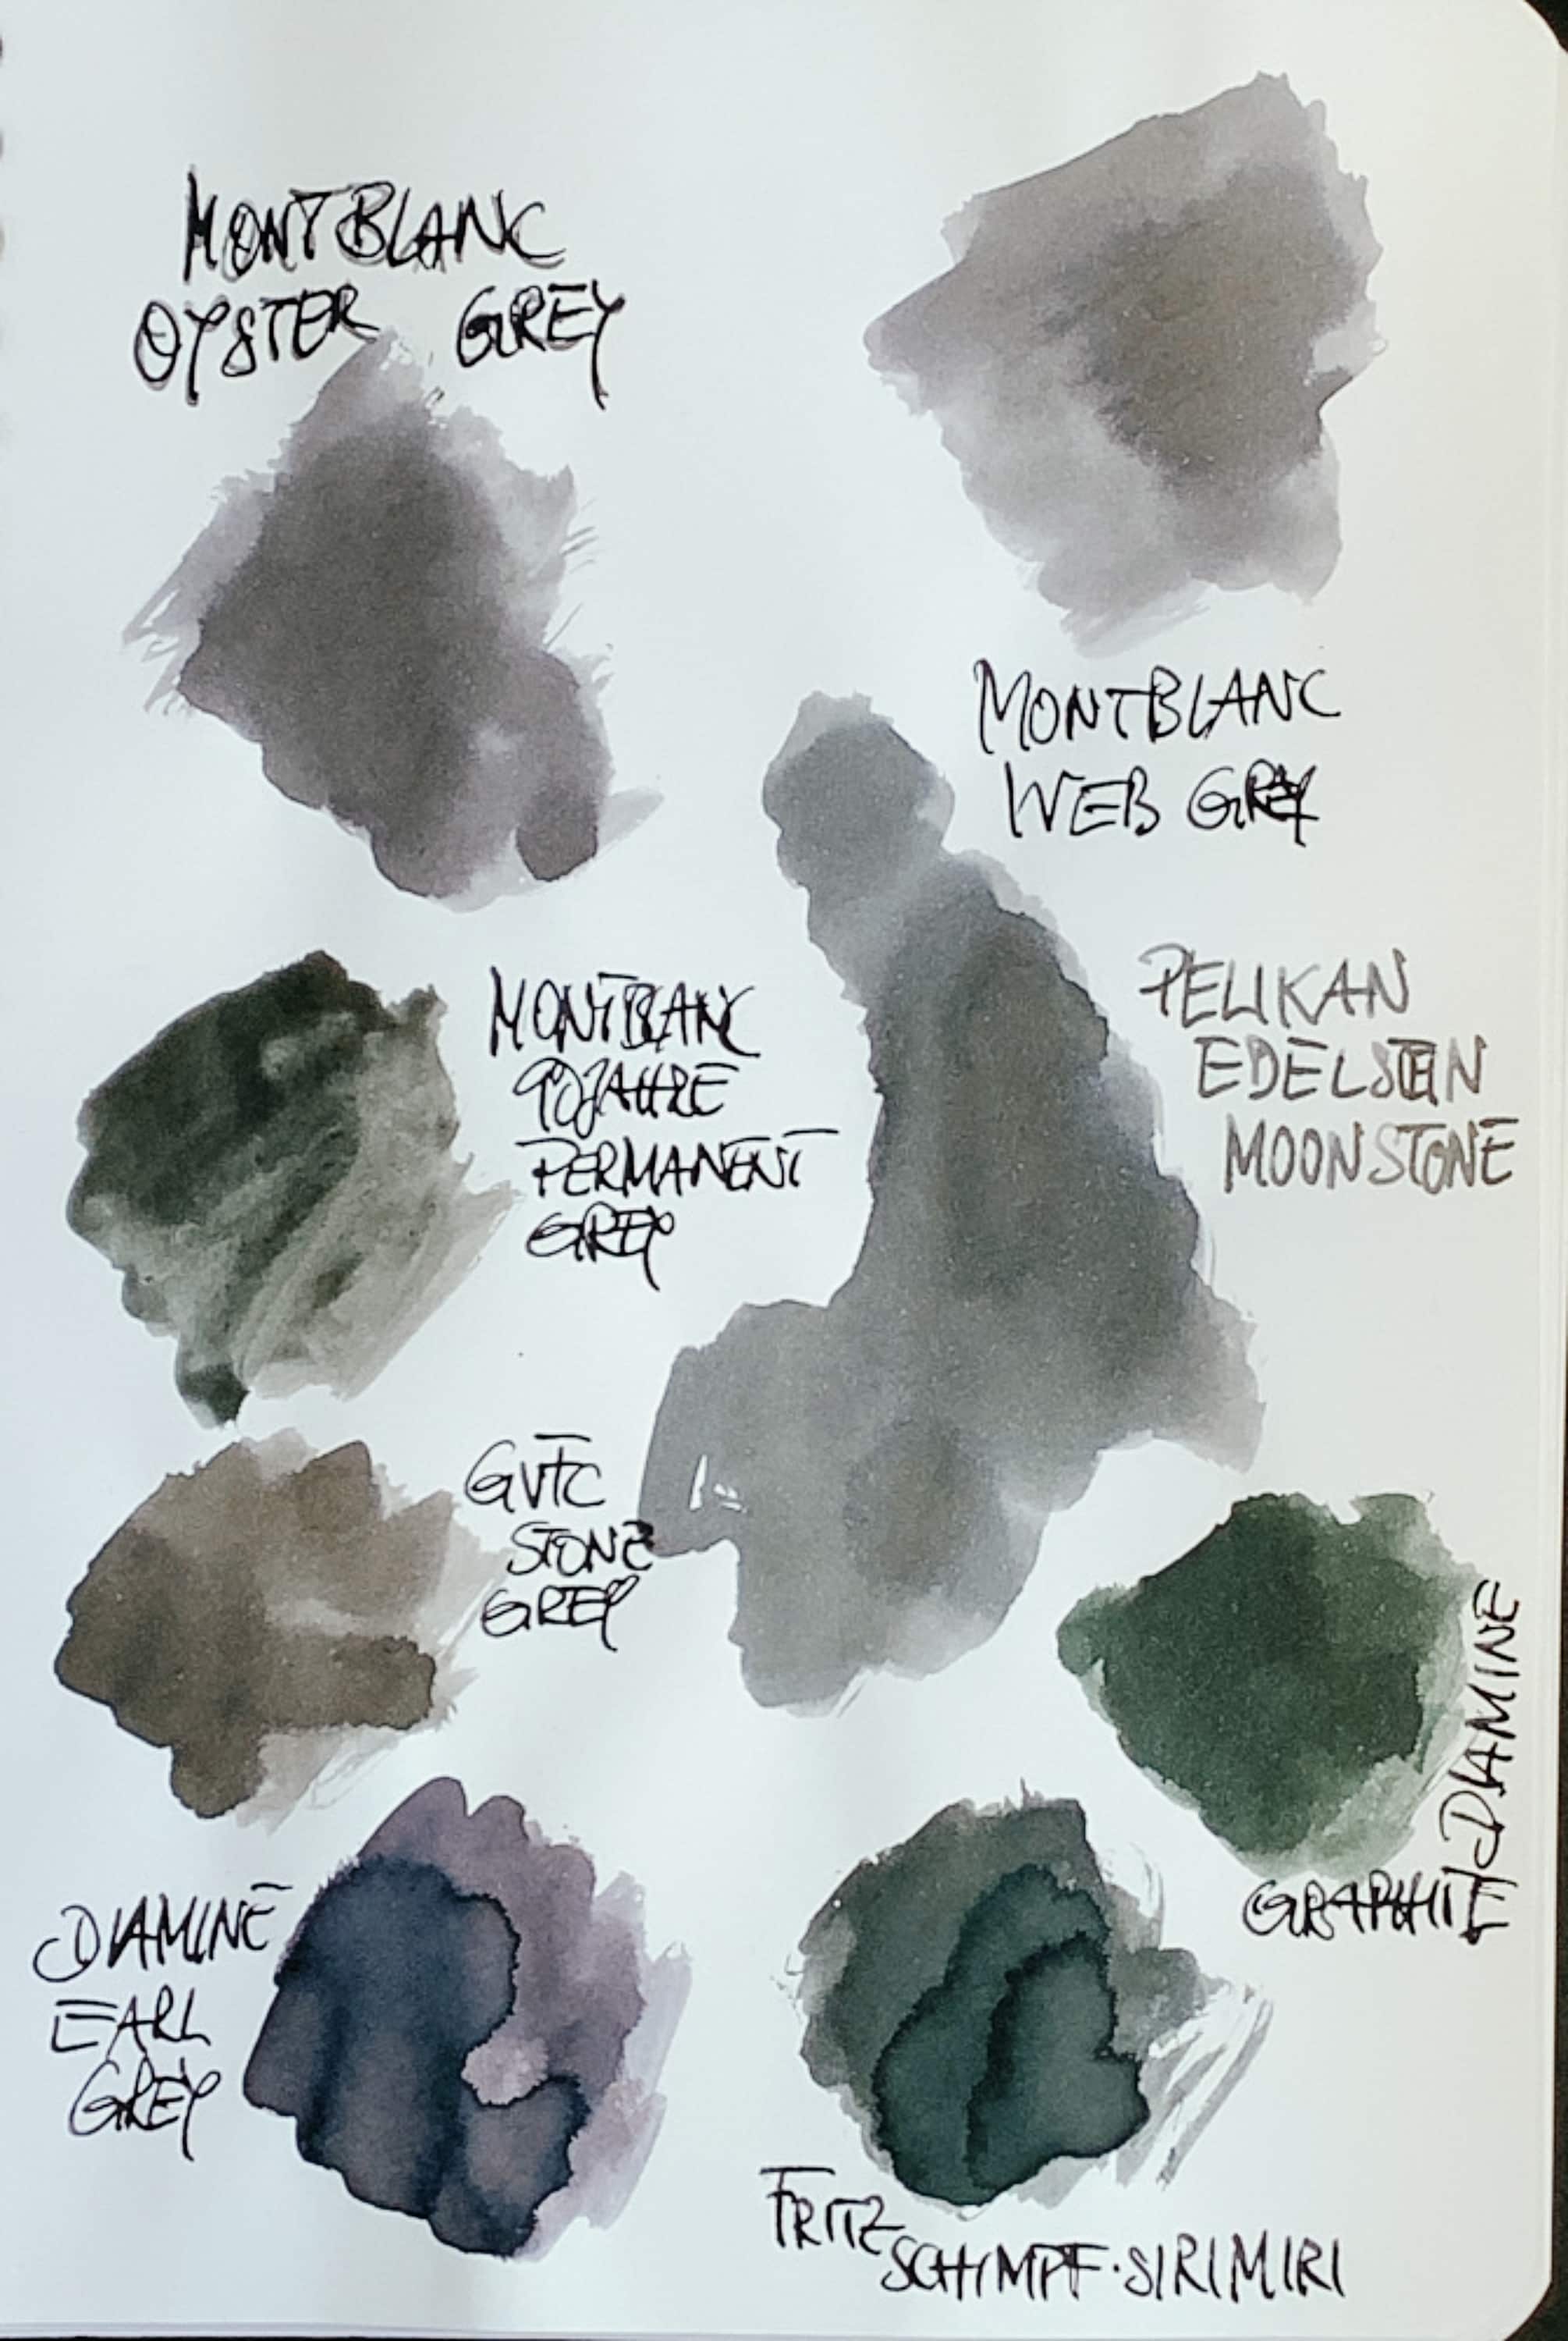 MONTBLANC
OYSTER GREY
MONTBLANC
WEB GREY
MONTBLANC
90JAHRE
PERMANENT
GREY
PELIKAN
EDELSTEIN
MOONSTONE
GVFC
STONE
GREY
DIAMINE
GRAPHITE
DIAMINE
EARL
GREY
FRITZ
SCHIMPF·SIRIMIRI